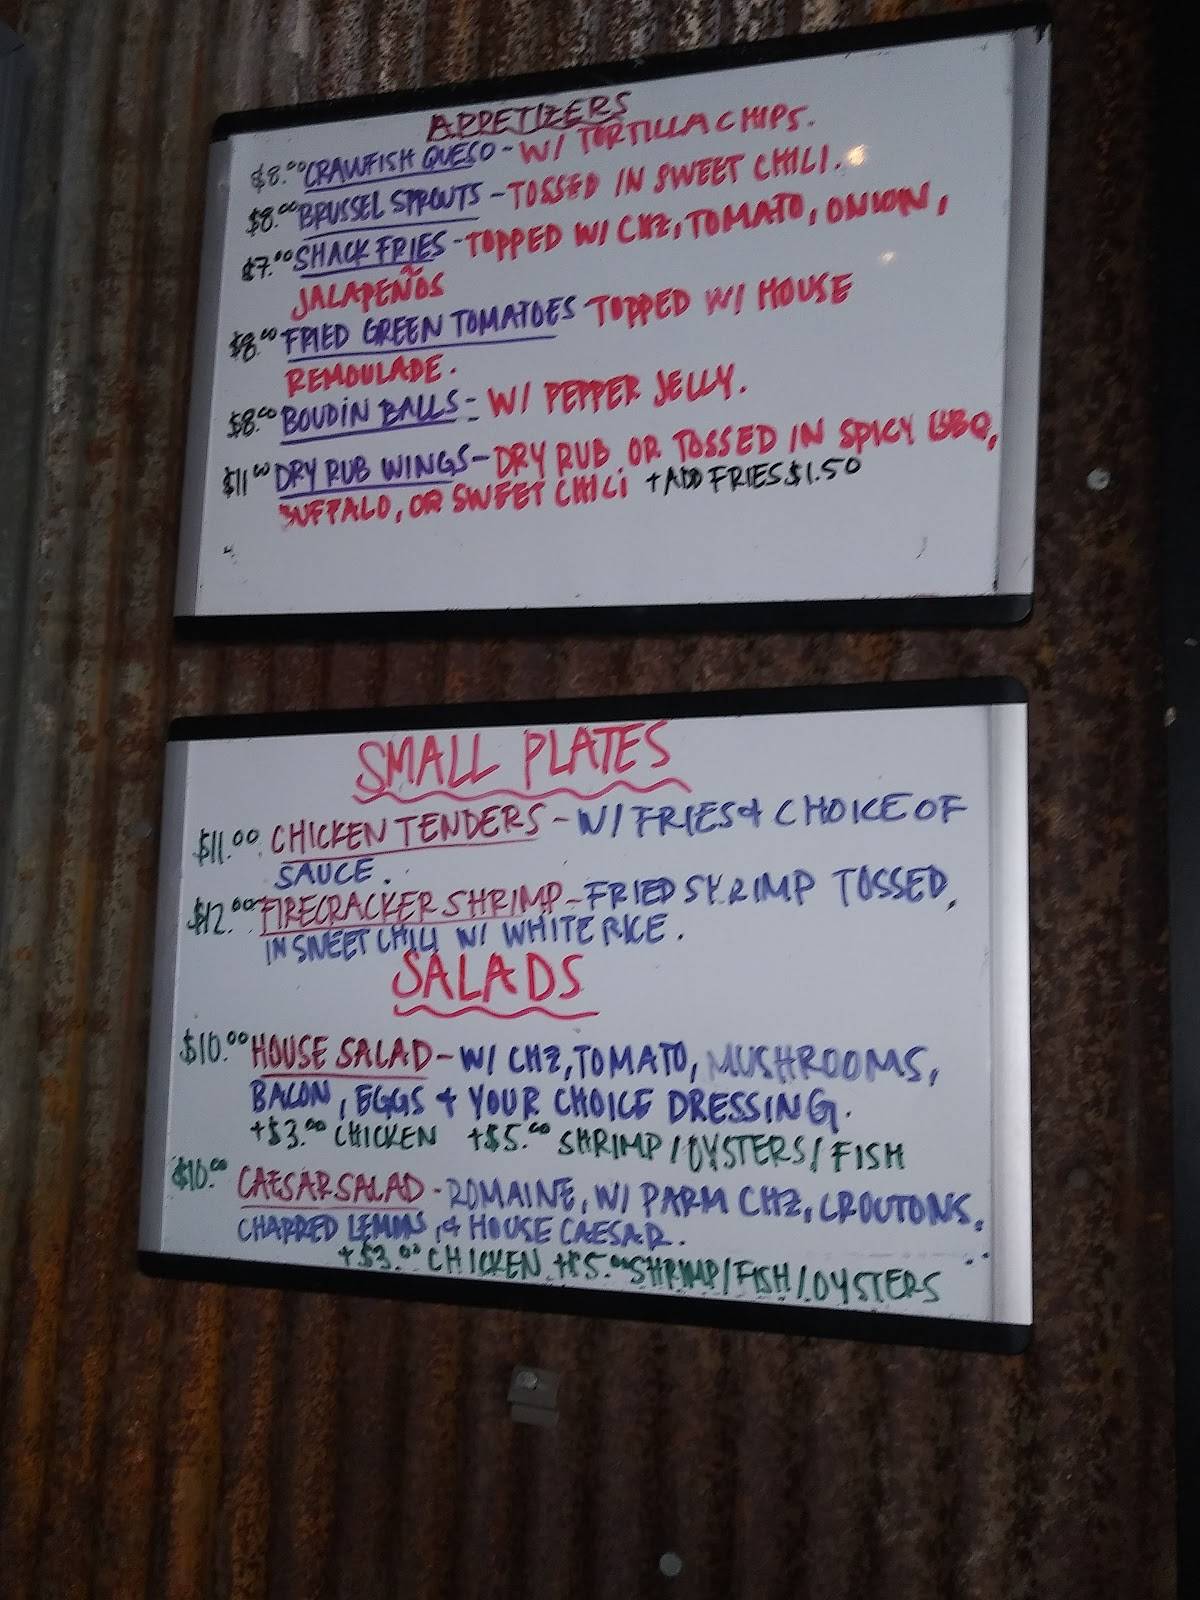 APPETIZERS
$8.00 CRAWFISH QUESO - W/ TORTILLA CHIPS.
$8.00 BRUSSEL SPROUTS - TOSSED IN SWEET CHILI.
$7.00 SHACK FRIES - TOPPED W/ CHZ, TOMATO, ONION,
JALAPEÑOS
$8.00 FRIED GREEN TOMATOES TOPPED W/ HOUSE
REMOULADE.
$8.00 BOUDIN BALLS - W/ PEPPER JELLY.
$11.00 DRY RUB WINGS - DRY RUB OR TOSSED IN SPICY BBQ,
BUFFALO, OR SWEET CHILI +ADD FRIES $1.50
SMALL PLATES
$11.00 CHICKEN TENDERS - W/ FRIES & CHOICE OF
SAUCE.
$12.00 FIRECRACKER SHRIMP - FRIED SHRIMP TOSSED,
IN SWEET CHILI W/ WHITE RICE.
SALADS
$10.00 HOUSE SALAD - W/ CHZ, TOMATO, MUSHROOMS,
BACON, EGGS & YOUR CHOICE DRESSING.
+$3.00 CHICKEN +$5.00 SHRIMP/OYSTERS/FISH
$10.00 CAESAR SALAD - ROMAINE, W/ PARM CHZ, CROUTONS,
CHARRED LEMONS, & HOUSE CAESAR.
+$3.00 CHICKEN +$5.00 SHRIMP/FISH/OYSTERS